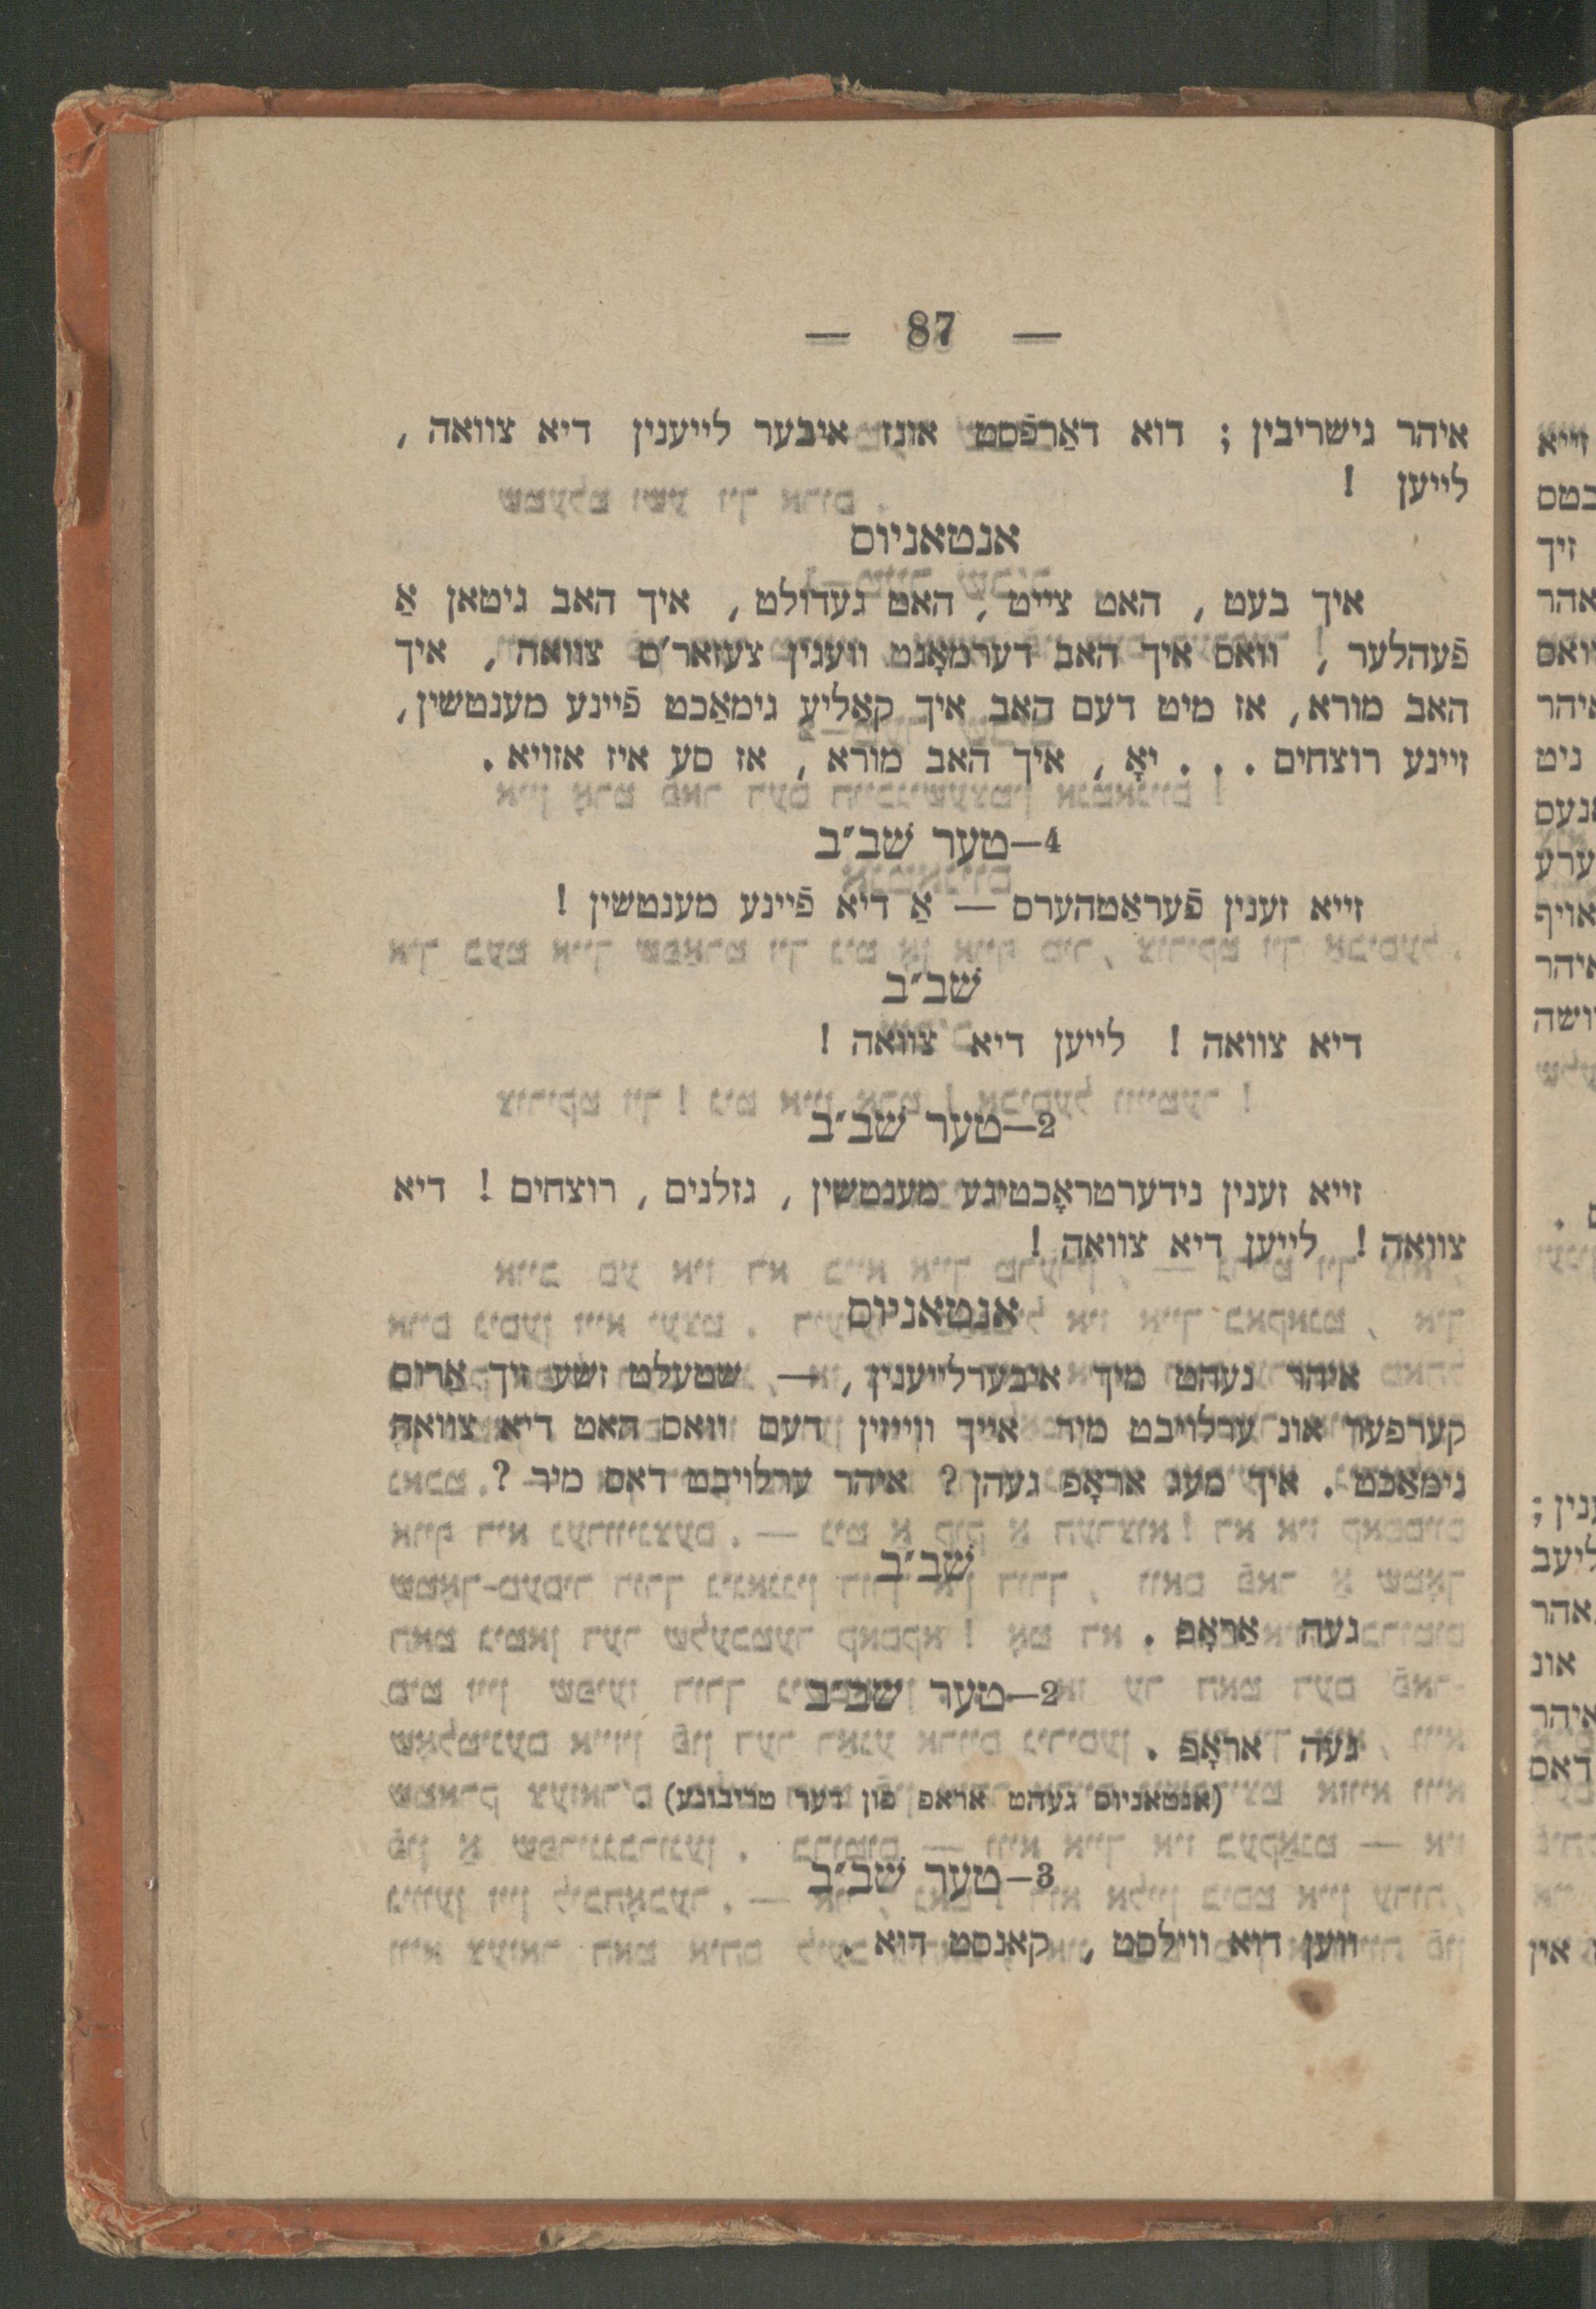 — 87 —
איהר גישריבין ; דוא דאַרפֿסט אונז איבער לייענין דיא צוואה ,
לייען !
אנטאניוס
איך בעט , האט צייט , האט געדולט , איך האב גיטאן אַ
פֿעהלער , וואס איך האב דערמאָנט וועגין צעזאר'ס צוואה , איך
האב מורא, אז מיט דעם האב איך קאַליע גימאַכט פֿיינע מענטשין,
זיינע רוצחים . . . יאָ , איך האב מורא , אז סע איז אזויא .
4—טער שב״ב
זייא זענין פֿעראַטהערס — אַ דיא פֿיינע מענטשין !
שב״ב
דיא צוואה ! לייען דיא צוואה !
2—טער שב״ב
זייא זענין נידערטראָכטיגע מענטשין , גזלנים , רוצחים ! דיא
צוואה ! לייען דיא צוואה !
אנטאניוס
איהר נעהט מיך איבערלייענין , — שטעלט זשע זיך אַרום
קערפער אונ ערלויבט מיר אייך ווייזין דעם וואס האט דיא צוואה
גימאַכט . איך מעג אראָפ געהן ? איהר ערלויבט דאס מיר ?
שב״ב
געה אַראָפ .
2—טער שב״ב
געה אראָפ .
(אנטאניוס געהט אראפ פון דער טריבונע)
3—טער שב״ב
ווען דוא ווילסט , קאנסט דוא .